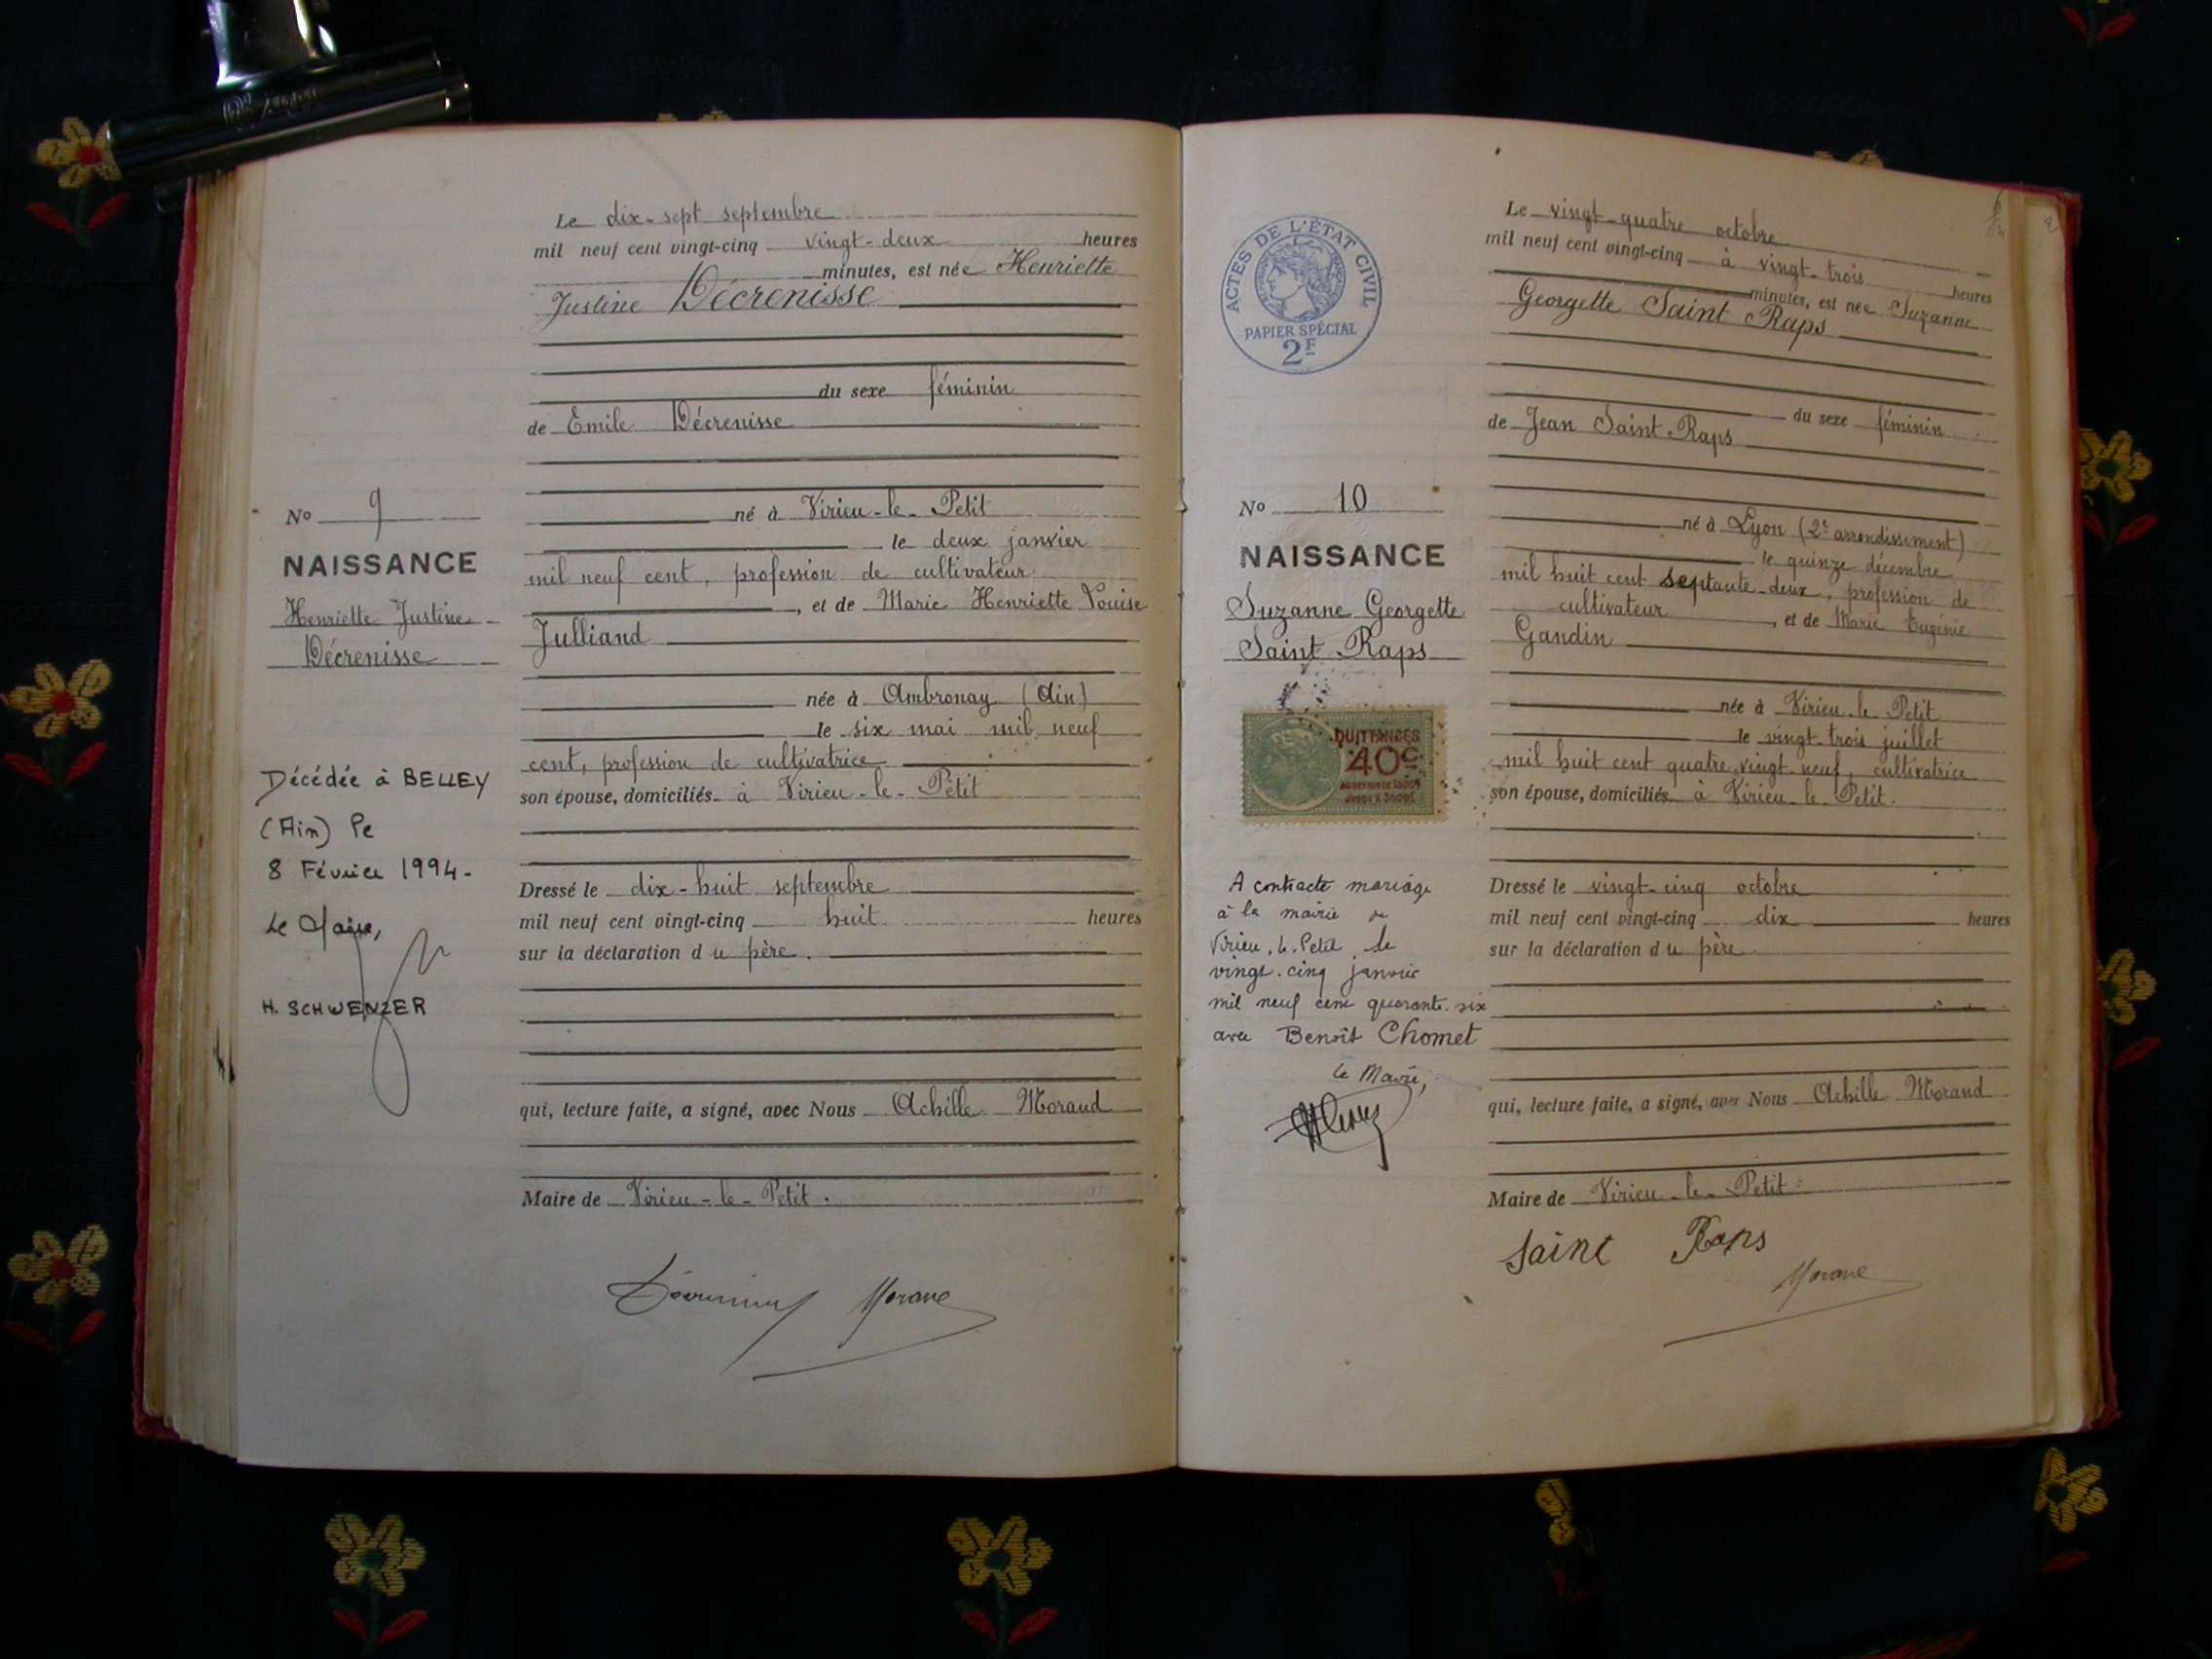 Le dix-sept septembre
mil neuf cent vingt-cinq vingt-deux heures
minutes, est née Henriette
Justine Décrenisse
du sexe féminin
de Emile Décrenisse
né à Virieu-le-Petit
le deux janvier
mil neuf cent, profession de cultivateur
, et de Marie Henriette Louise
Julliand
née à Ambronay (Ain)
le six mai mil neuf
cent, profession de cultivatrice
son épouse, domiciliés à Virieu-le-Petit
Dressé le dix-huit septembre
mil neuf cent vingt-cinq huit heures
sur la déclaration du père.
qui, lecture faite, a signé, avec Nous Achille Morand
Maire de Virieu-le-Petit.
No 9
NAISSANCE
Henriette Justine
Décrenisse
Décédée à BELLEY
(Ain) le
8 Février 1994-
Le Maire,
H. SCHWENZER
ACTES DE L'ÉTAT CIVIL
PAPIER SPÉCIAL
2F
No 10
NAISSANCE
Suzanne Georgette
Saint Raps
QUITTANCES
40c
A contracté mariage
à la mairie de
Virieu-le-Petit le
vingt-cinq janvier
mil neuf cent quarante-six
avec Benoît Chomet
Le Maire,
Le vingt-quatre octobre
mil neuf cent vingt-cinq à vingt-trois heures
minutes, est née Suzanne
Georgette Saint Raps
du sexe féminin
de Jean Saint Raps
né à Lyon (2e arrondissement)
le quinze décembre
mil huit cent septante-deux, profession de
cultivateur, et de Marie Eugénie
Gandin
née à Virieu-le-Petit
le vingt-trois juillet
mil huit cent quatre vingt-neuf, cultivatrice
son épouse, domiciliés à Virieu-le-Petit.
Dressé le vingt-cinq octobre
mil neuf cent vingt-cinq dix heures
sur la déclaration du père
qui, lecture faite, a signé, avec Nous Achille Morand
Maire de Virieu-le-Petit
Saint Raps